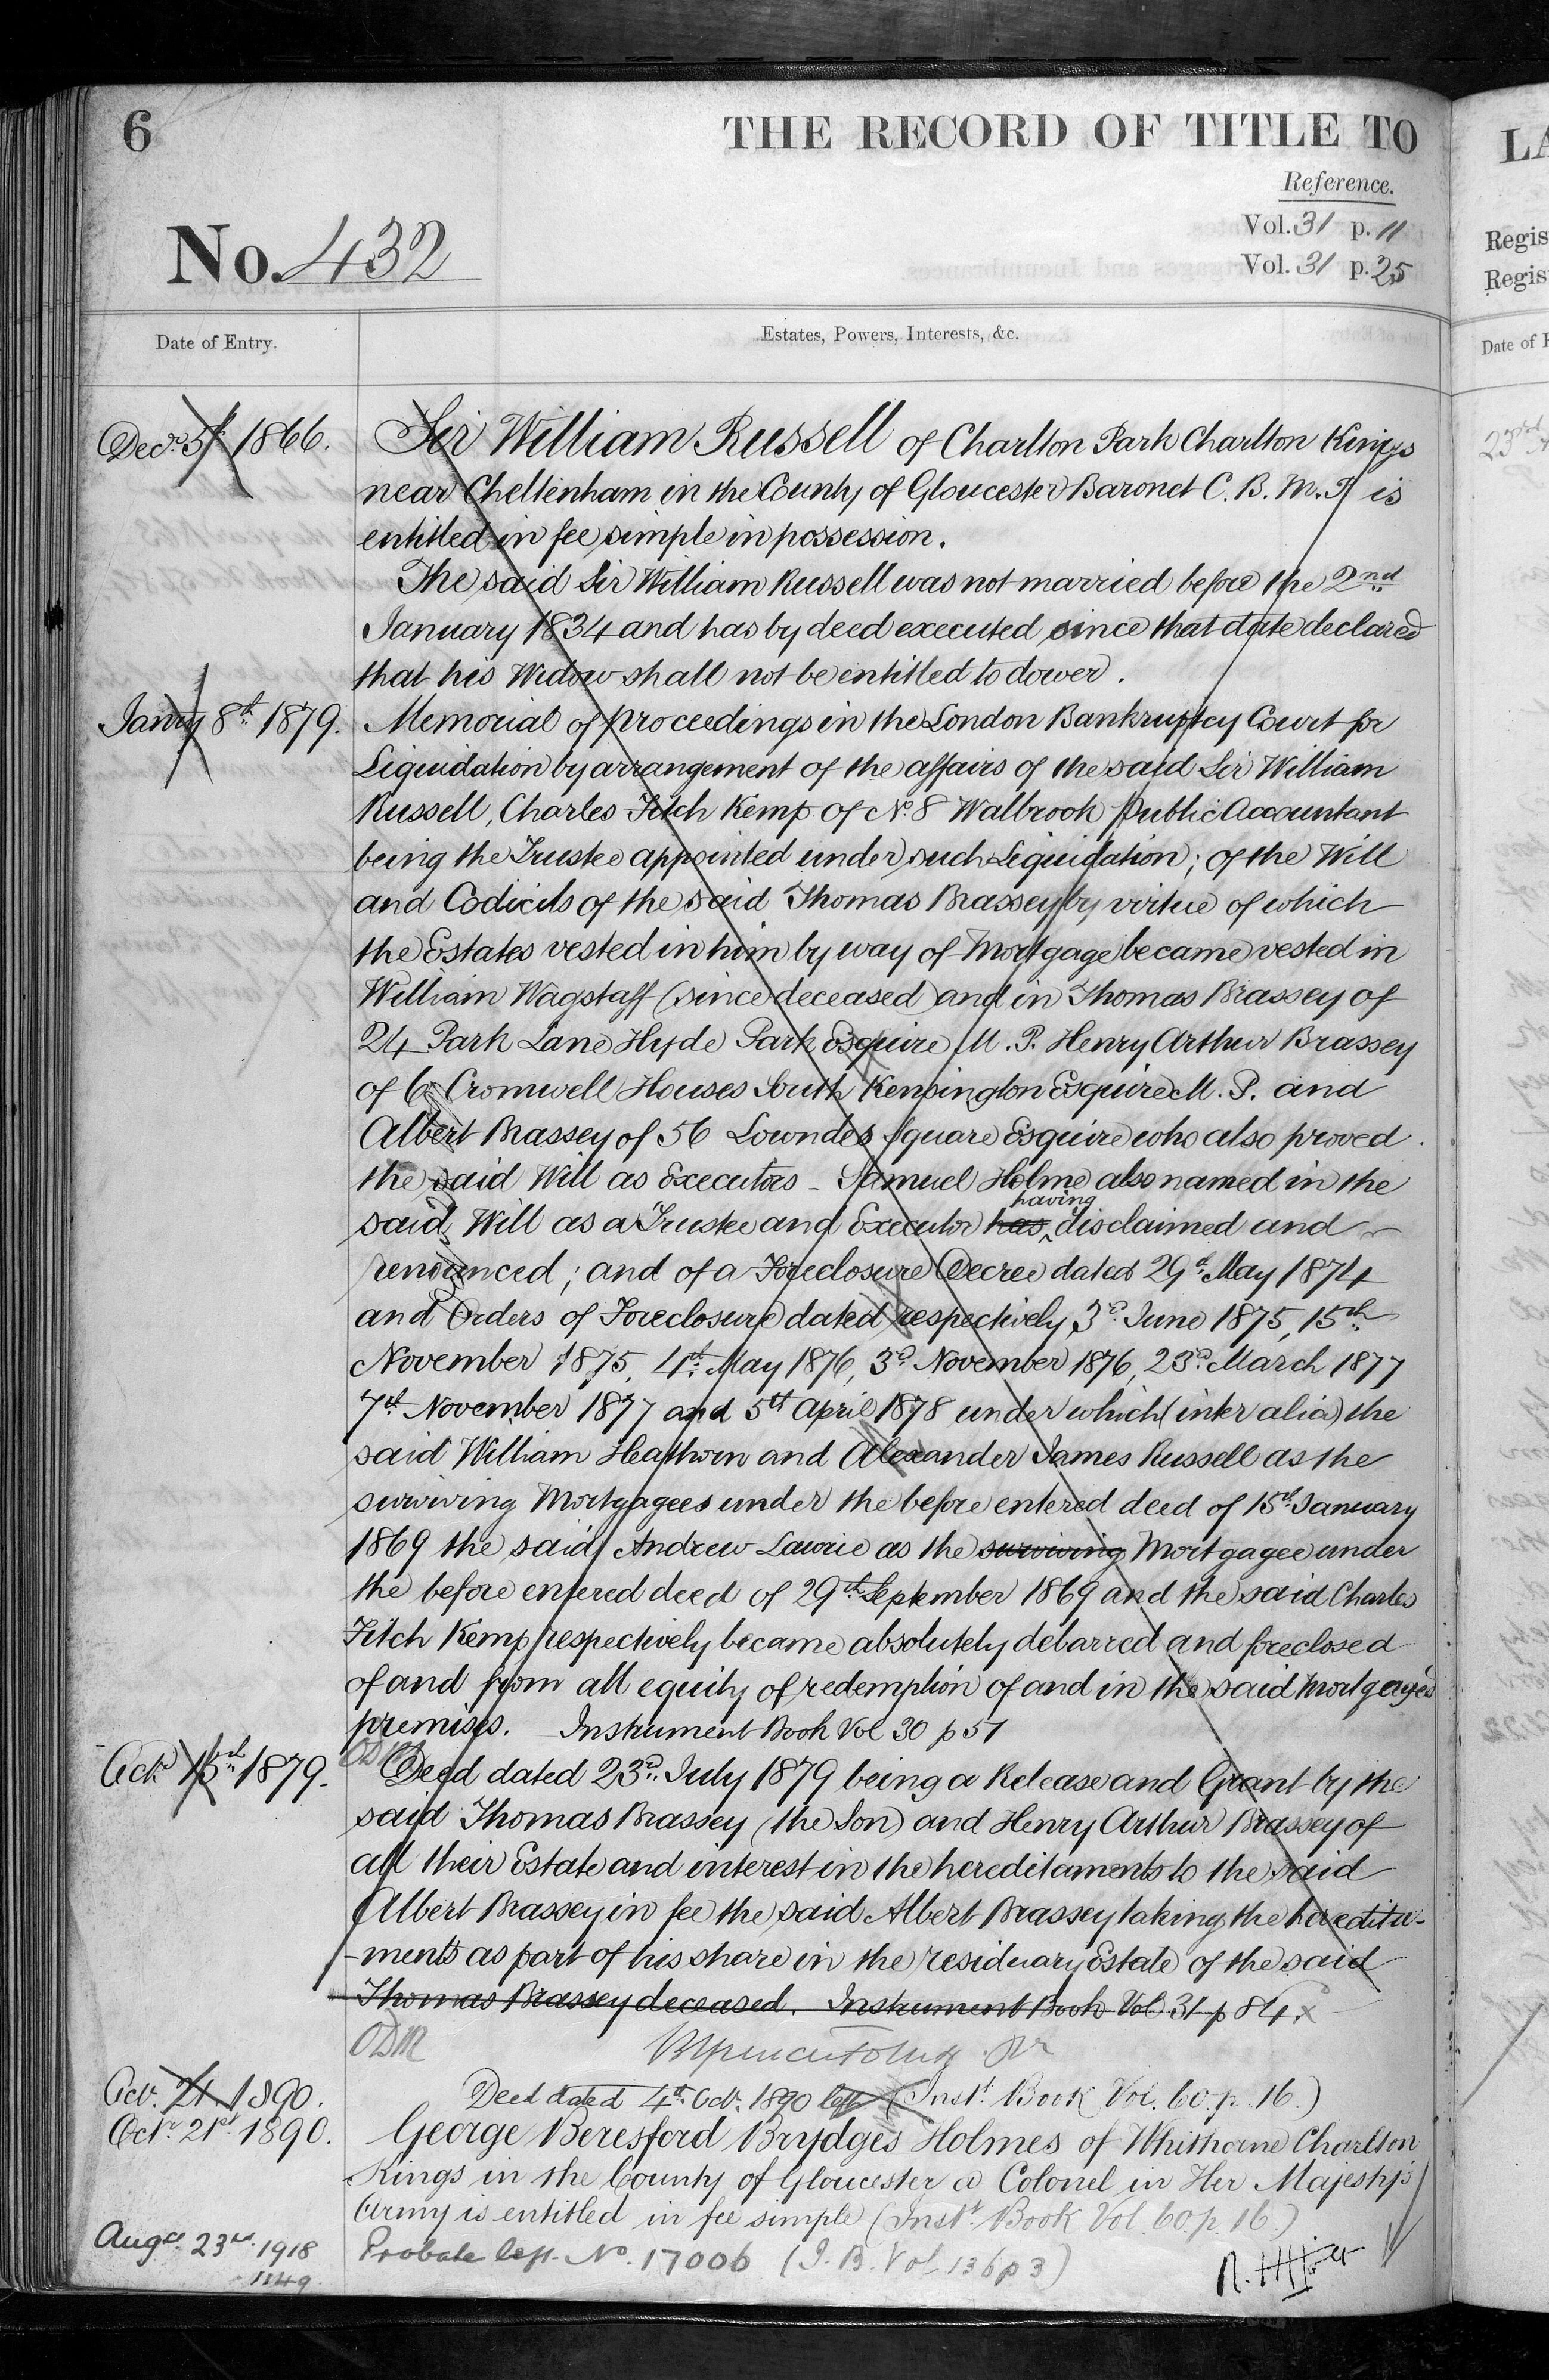 6
THE RECORD OF TITLE TO
Reference.
Vol. 31 p. 11
Vol. 31 p. 25
No. 432
Date of Entry.
Estates, Powers, Interests, &c.
Decr. 5th 1866.
Sir William Russell of Charlton Park Charlton Kings
near Cheltenham in the County of Gloucester Baronet C. B. M. P. is
entitled in fee simple in possession.
The said Sir William Russell was not married before the 2nd
January 1834 and has by deed executed since that date declared
that his Widow shall not be entitled to dower.
Janry 8th 1879.
Memorial of proceedings in the London Bankruptcy Court for
Liquidation by arrangement of the affairs of the said Sir William
Russell, Charles Fitch Kemp of No. 8 Walbrook Public Accountant
being the Trustee appointed under such Liquidation; of the Will
and Codicils of the said Thomas Brassey by virtue of which
the Estates vested in him by way of Mortgage became vested in
William Wagstaff (since deceased) and in Thomas Brassey of
24 Park Lane Hyde Park Esquire M. P. Henry Arthur Brassey
of 6 Cromwell Houses South Kensington Esquire M. P. and
Albert Brassey of 56 Lowndes Square Esquire who also proved
the said Will as Executors - Samuel Holme also named in the
said Will as a Trustee and Executor has having disclaimed and
renounced; and of a Foreclosure Decree dated 29th May 1874
and Orders of Foreclosure dated respectively 3d June 1875, 15th
November 1875, 4th May 1876, 3d November 1876, 23d March 1877
7th November 1877 and 5th April 1878 under which (inter alia) the
said William Heathorn and Alexander James Russell as the
surviving Mortgagees under the before entered deed of 15th January
1869 the said Andrew Lawrie as the surviving Mortgagee under
the before entered deed of 29th September 1869 and the said Charles
Fitch Kemp respectively became absolutely debarred and foreclosed
of and from all equity of redemption of and in the said mortgaged
premises. Instrument Book Vol 30 p 51
Octr 15th 1879.
Deed dated 23d. July 1879 being a Release and Grant by the
said Thomas Brassey (the Son) and Henry Arthur Brassey of
all their Estate and interest in the hereditaments to the said
Albert Brassey in fee the said Albert Brassey taking the heredita-
-ments as part of his share in the residuary Estate of the said
Thomas Brassey deceased. Instrument Book Vol 31 p 84.
ODM
Oct. 21 1890.
Deed dated 4th Oct. 1890 left (Inst. Book Vol. 60. p. 16.)
Octr. 21st 1890.
George Beresford Brydges Holmes of Whithorne Charlton
Kings in the County of Gloucester a Colonel in Her Majesty's
Army is entitled in fee simple (Inst. Book Vol. 60. p. 16.)
Augt. 23rd. 1918
Probate left. No. 17006 (I. B. Vol 136 p 3)
1149